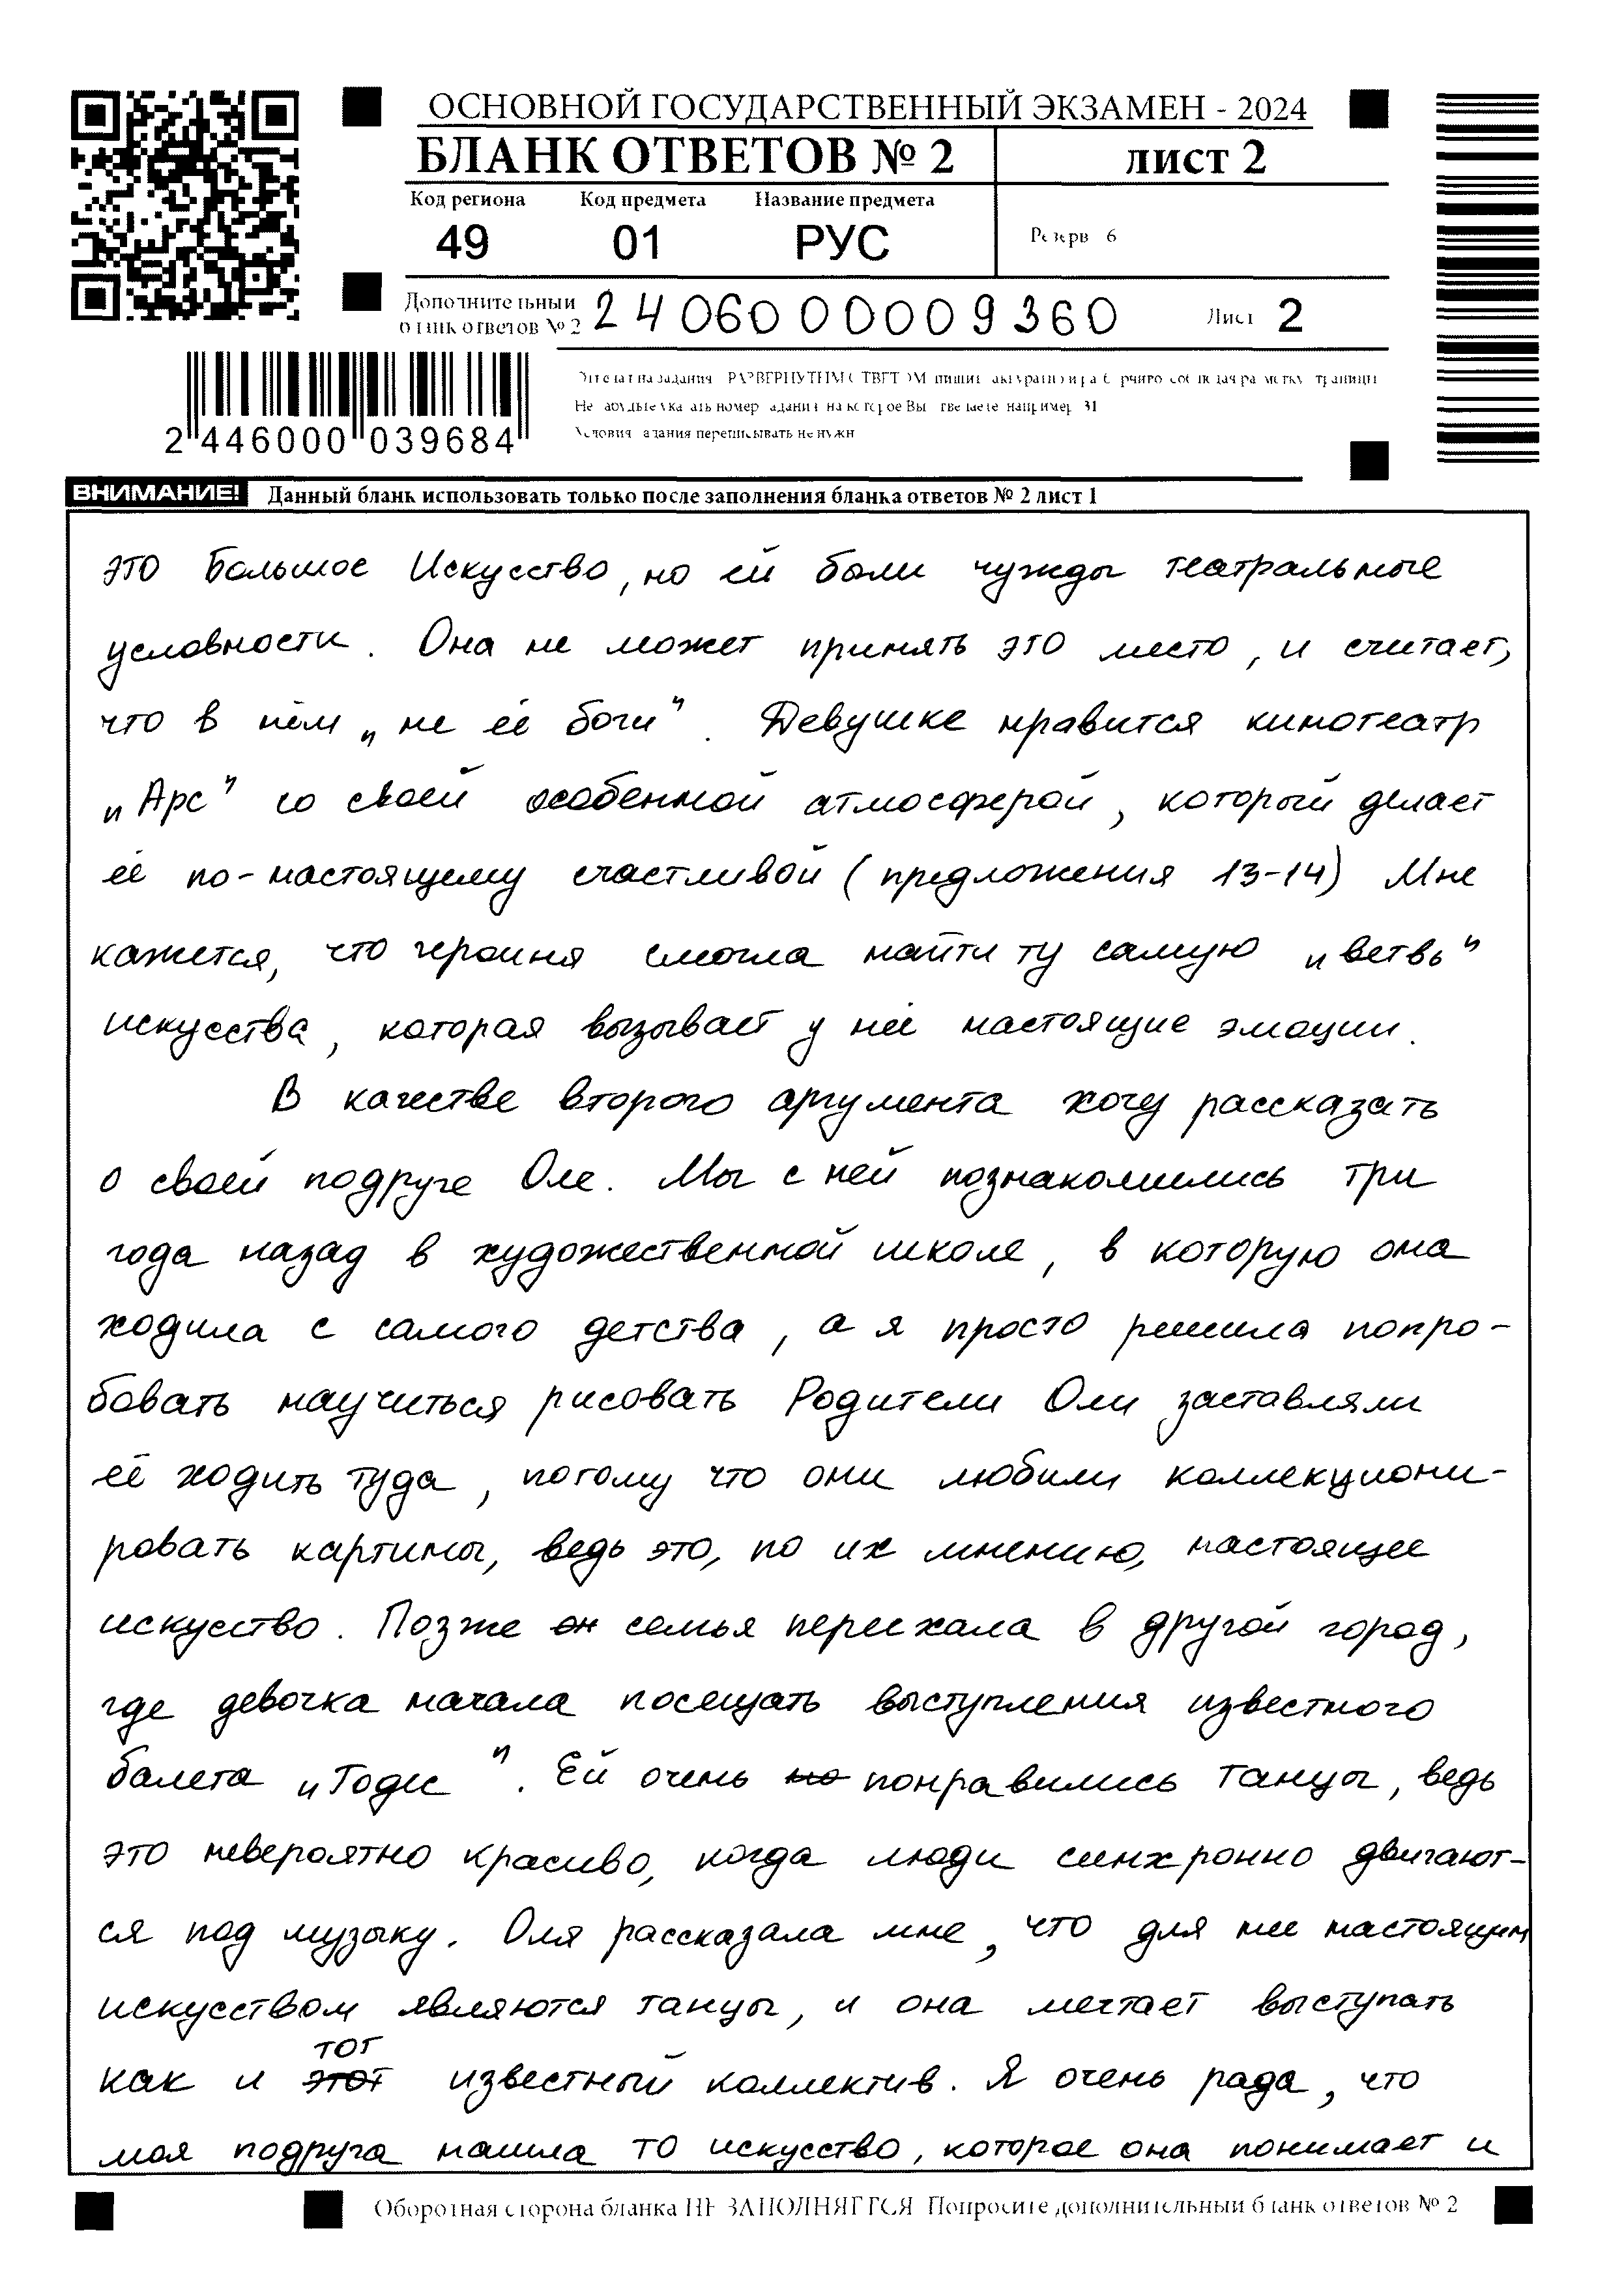 ОСНОВНОЙ ГОСУДАРСТВЕННЫЙ ЭКЗАМЕН - 2024
БЛАНК ОТВЕТОВ № 2
ЛИСТ 2
Код региона Код предмета Название предмета
49 01 РУС
Резерв 6
Дополнительный
бланк ответов № 2
2406000009360
Лист 2
2 446000 039684
ВНИМАНИЕ! Данный бланк использовать только после заполнения бланка ответов № 2 лист 1
это Большое Искусство, но ей были чужды театральные
условности. Она не может принять это место, и считает,
что в нём „не её боги". Девушке нравится кинотеатр
„Арс" со своей особенной атмосферой, который делает
её по-настоящему счастливой (предложения 13-14) Мне
кажется, что героиня смогла найти ту самую „ветвь"
искусства, которая вызывает у неё настоящие эмоции.
В качестве второго аргумента хочу рассказать
о своей подруге Оле. Мы с ней познакомились три
года назад в художественной школе, в которую она
ходила с самого детства, а я просто решила попро-
бовать научиться рисовать Родители Оли заставляли
её ходить туда, потому что они любили коллекциони-
ровать картины, ведь это, по их мнению, настоящее
искусство. Позже он семья переехала в другой город,
где девочка начала посещать выступления известного
балета „Тодес". Ей очень но понравились танцы, ведь
это невероятно красиво, когда люди синхронно двигают-
ся под музыку. Оля рассказала мне, что для нее настоящим
искусством являются танцы, и она мечтает выступать
тот
как и этот известный коллектив. Я очень рада, что
моя подруга нашла то искусство, которое она понимает и
Оборотная сторона бланка НЕ ЗАПОЛНЯЕТСЯ Попросите дополнительный бланк ответов № 2